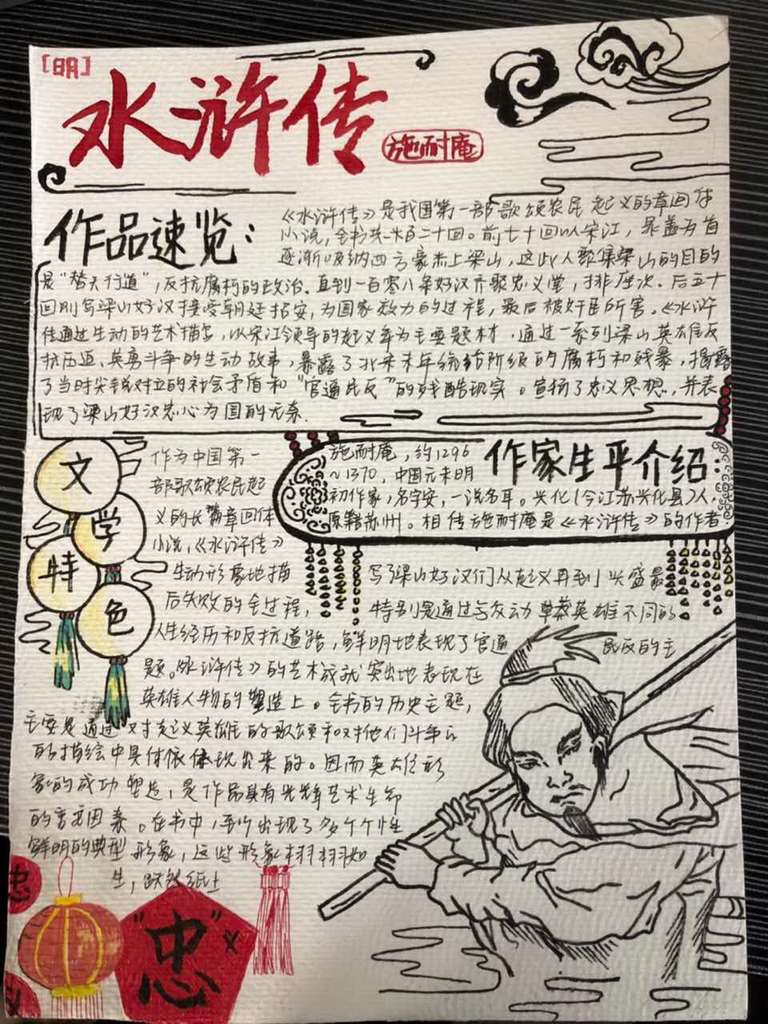 [明]
水浒传
施耐庵
作品速览：
《水浒传》是我国第一部歌颂农民起义的章回体
小说，全书共一百二十回。前七十回以宋江，晁盖为首
逐渐吸纳四方豪杰上梁山，这些人聚集梁山的目的
是“替天行道”，反抗腐朽的政治。直到一百零八条好汉齐聚忠义堂，排座次。后五十
回则写梁山好汉接受朝廷招安，为国家效力的过程，最后被奸臣所害。《水浒
传通过生动的艺术描写，以宋江领导的起义军为主要题材，通过一系列梁山英雄反
抗压迫、英勇斗争的生动故事，暴露了北宋末年统治阶级的腐朽和残暴，揭露
了当时尖锐对立的社会矛盾和“官逼民反”的残酷现实。宣扬了忠义思想，并表
现了梁山好汉忠心为国的元素.
作家生平介绍：
施耐庵，约1296
~1370，中国元末明
初作家，名字安，一说名耳。兴化（今江苏兴化县）人，
原籍苏州。相传施耐庵是《水浒传》的作者
文学特色
作为中国第一
部歌颂农民起
义的长篇章回体
小说，《水浒传》
生动形象地描写了梁山好汉们从起义再到兴盛最
后失败的全过程，特别是通过与友动草莽英雄不同的
人生经历和反抗道路，鲜明地表现了官逼民反的主
题。《水浒传》的艺术成就突出地表现在
英雄人物的塑造上。全书的历史主题，
主要是通过对起义英雄的歌颂和对他们斗争
的描绘中具体体现出来的。因而英雄形
象的成功塑造，是作品具有光辉艺术生命
的重要因素。在书中，出现了多个个性
鲜明的典型形象，这些形象栩栩如
生，跃然纸上
忠
“忠”
义